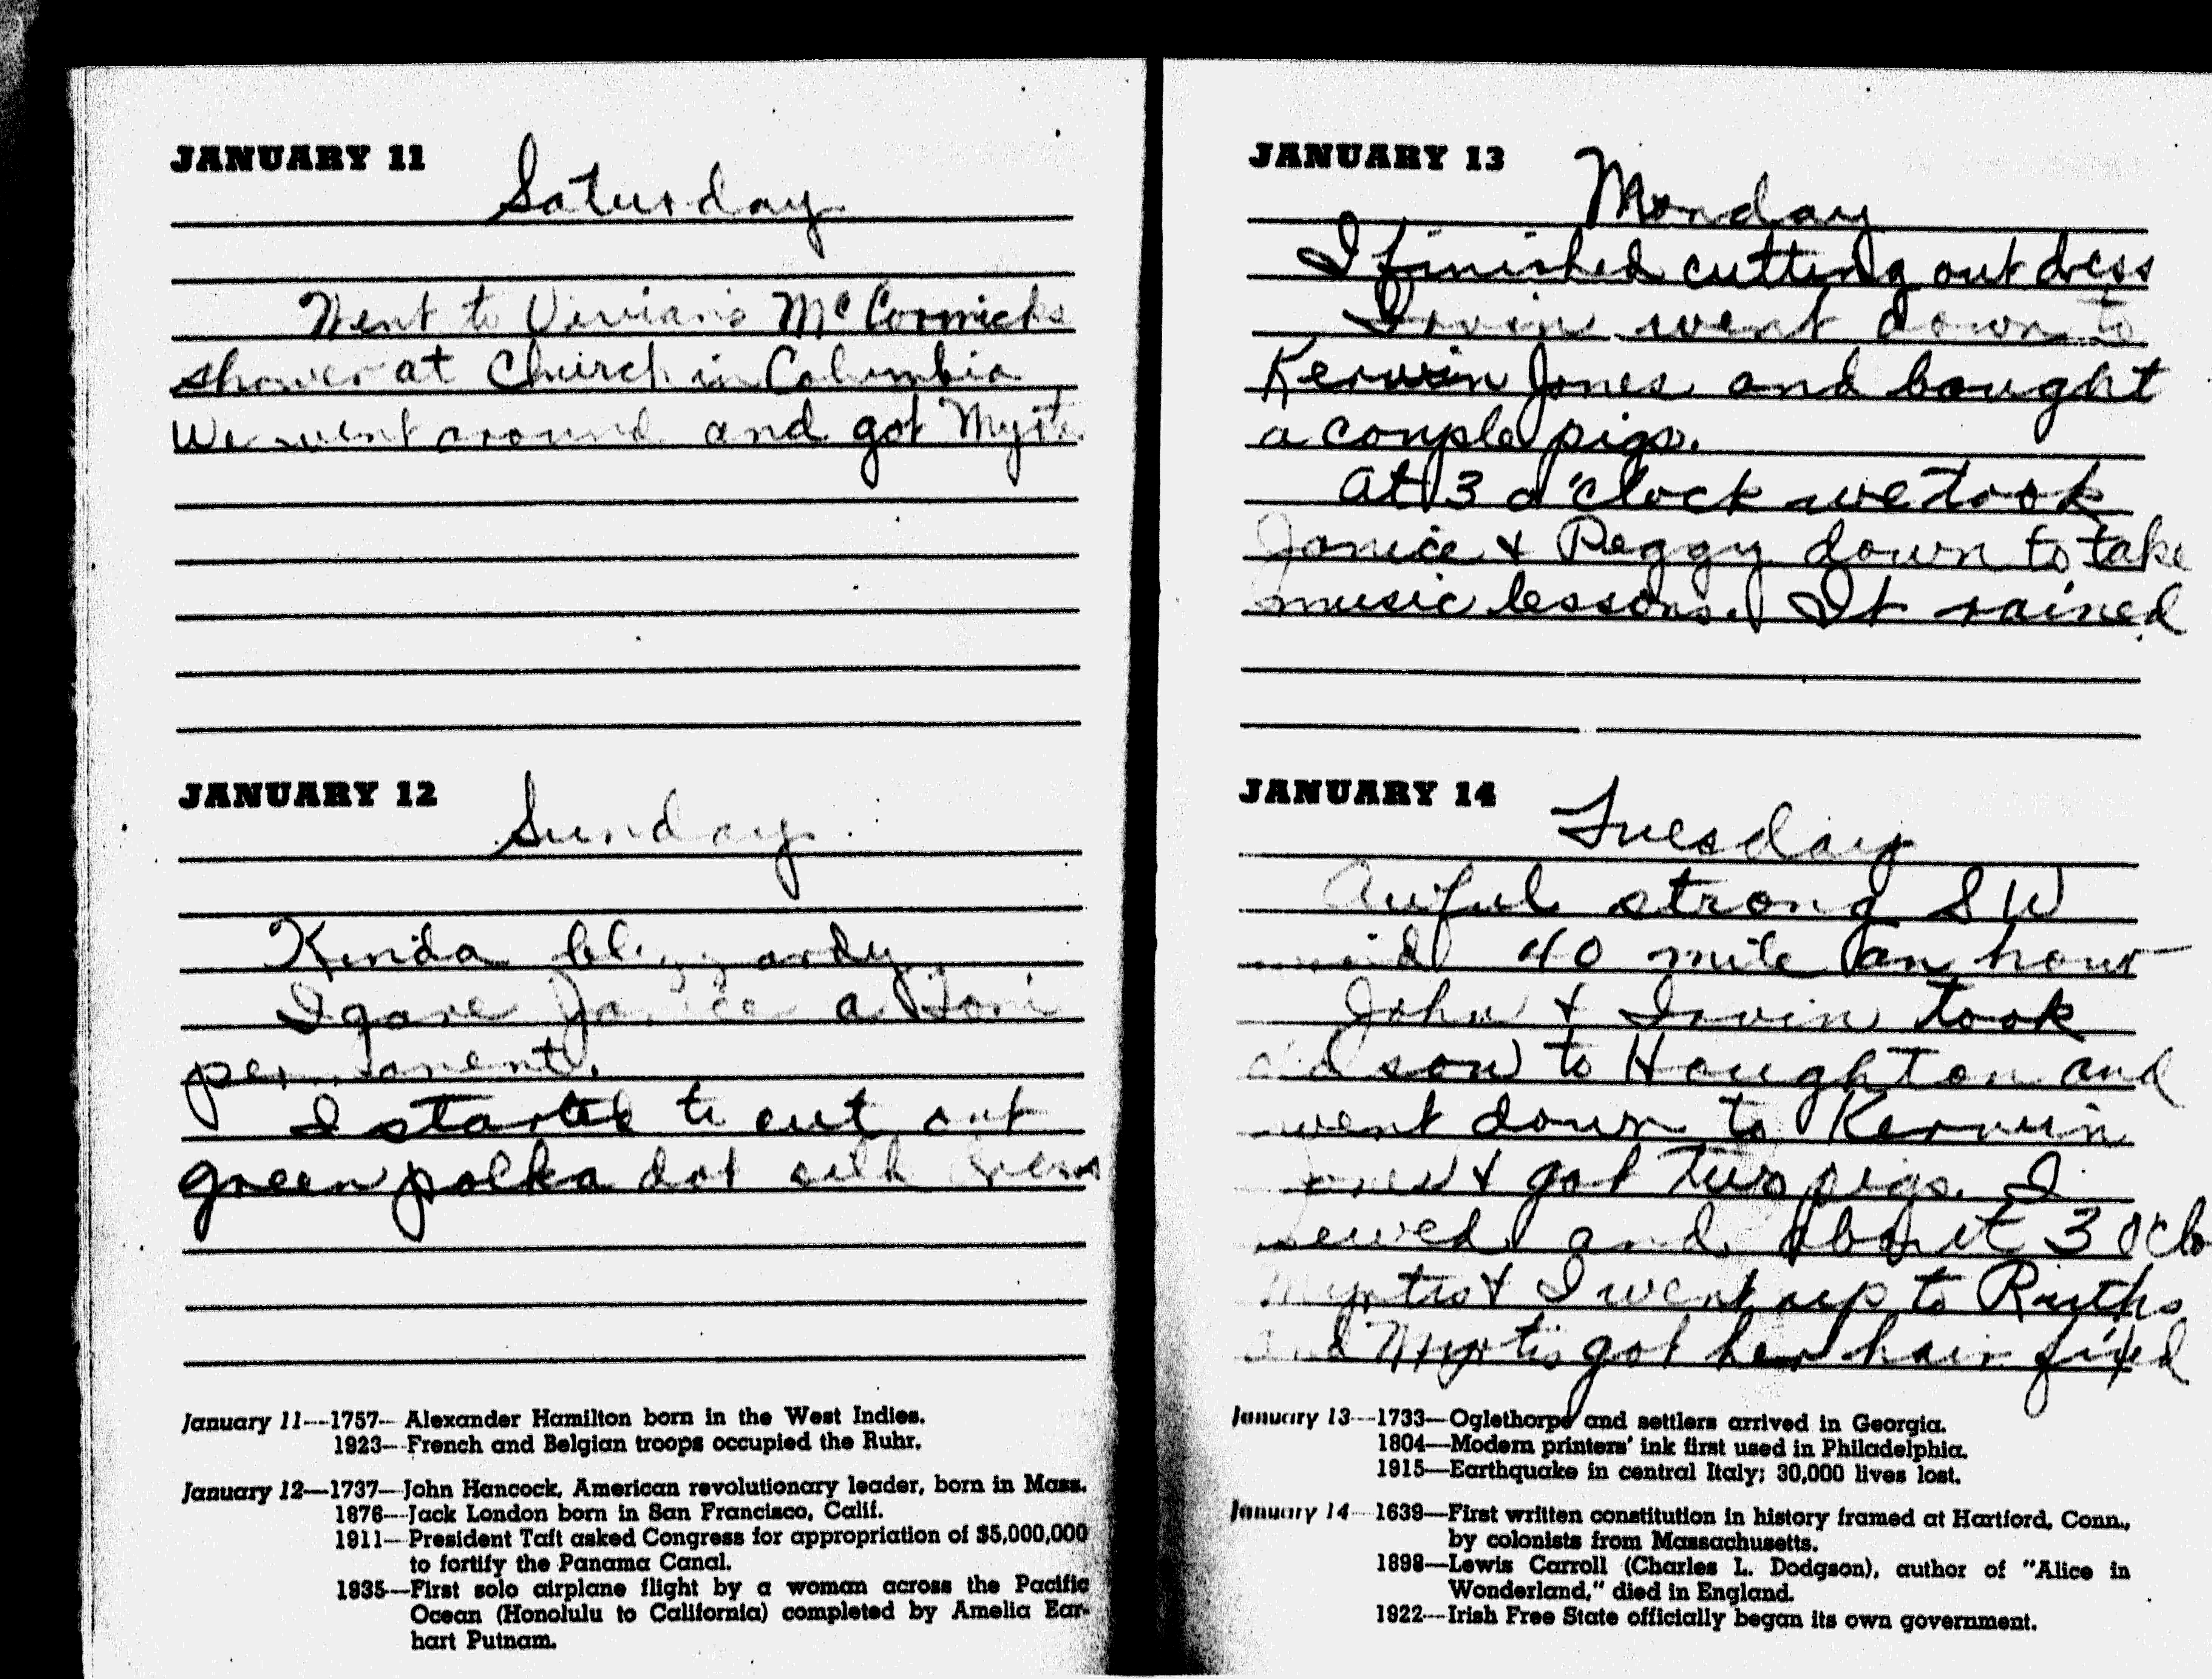 JANUARY 11
Saturday
Went to Vivian's McCormicks
shower at Church in Columbia
We went around and got Myrt.
JANUARY 12
Sunday
Kinda blizzardy
I gave Janice a Toni
permanent.
I started to cut out
green polka dot silk dress
January 11—1757—Alexander Hamilton born in the West Indies.
1923—French and Belgian troops occupied the Ruhr.
January 12—1737—John Hancock, American revolutionary leader, born in Mass.
1876—Jack London born in San Francisco, Calif.
1911—President Taft asked Congress for appropriation of $5,000,000
to fortify the Panama Canal.
1935—First solo airplane flight by a woman across the Pacific
Ocean (Honolulu to California) completed by Amelia Ear-
hart Putnam.
JANUARY 13
Monday
I finished cutting out dress
Irvin went down to
Kerwin Jones and bought
a couple pigs.
At 3 o'clock we took
Janice & Peggy down to take
music lessons. It rained
JANUARY 14
Tuesday
Awful strong S W
wind 40 mile an hour
John & Irvin took
old sow to Houghton and
went down to Kerwin
Jones & got two pigs. I
sewed and about 3 oclo
Myrtis & I went up to Ruths
and Myrtis got her hair fixed
January 13—1733—Oglethorpe and settlers arrived in Georgia.
1804—Modern printers' ink first used in Philadelphia.
1915—Earthquake in central Italy; 30,000 lives lost.
January 14—1639—First written constitution in history framed at Hartford, Conn.,
by colonists from Massachusetts.
1898—Lewis Carroll (Charles L. Dodgson), author of "Alice in
Wonderland," died in England.
1922—Irish Free State officially began its own government.